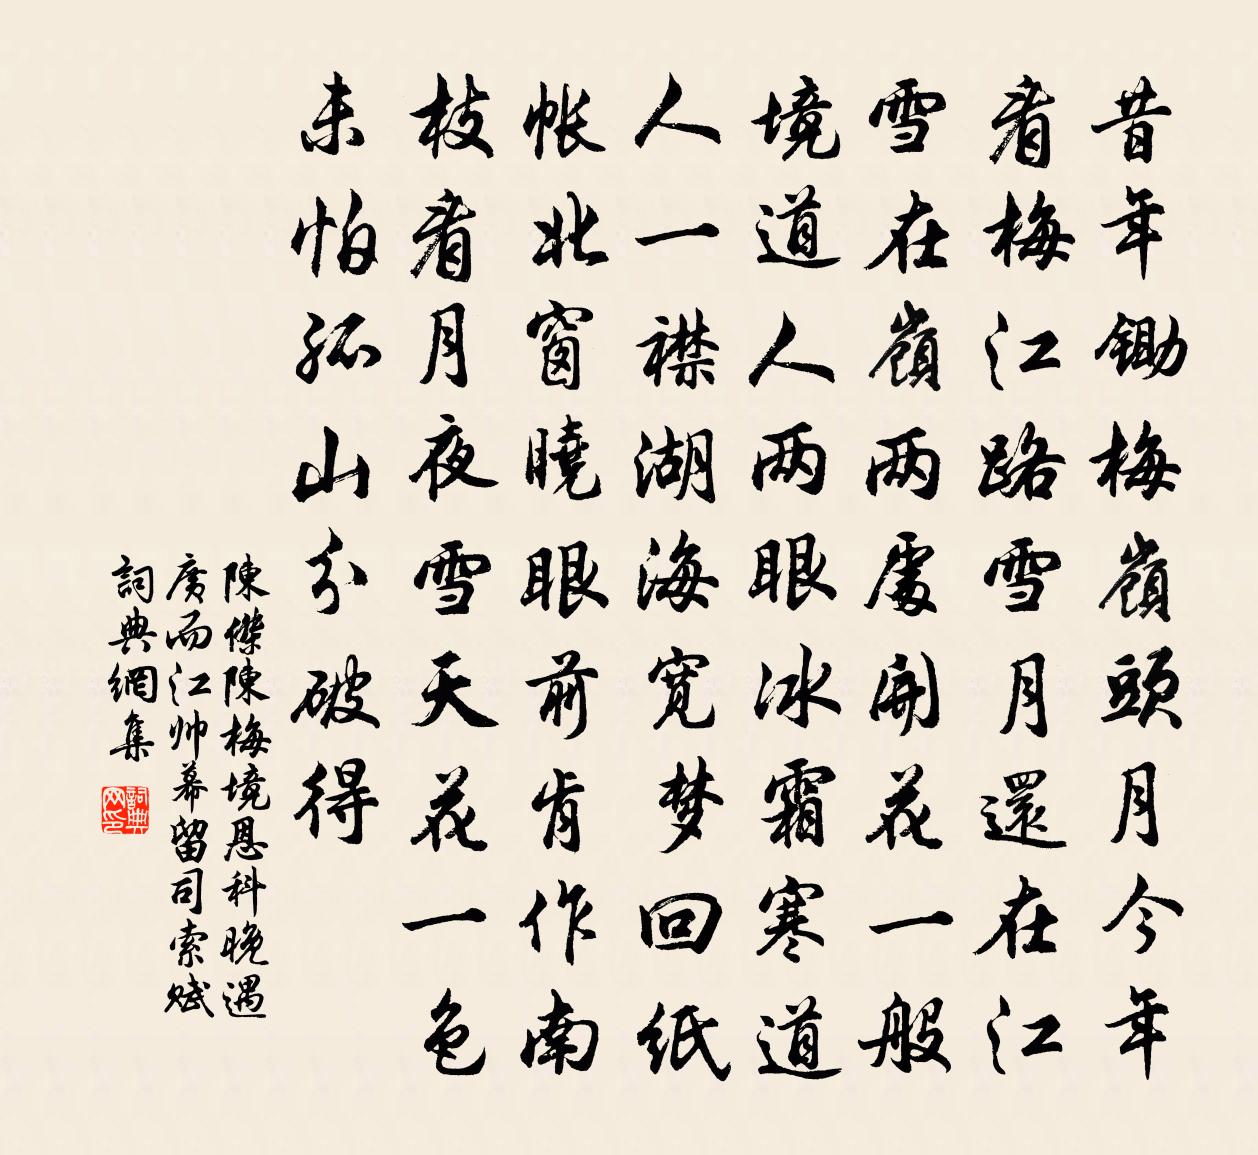 昔年鋤梅嶺頭月今年
看梅江路雪月還在江
雪在嶺两處開花一般
境道人两眼冰霜寒道
人一襟湖海宽梦回紙
帐北窗曉眼前肯作南
枝看月夜雪天花一色
未怕孤山分破得
陳傑陳梅境恩科晚遇
廣而江帅幕留司索赋
詞典網集
詞典网印